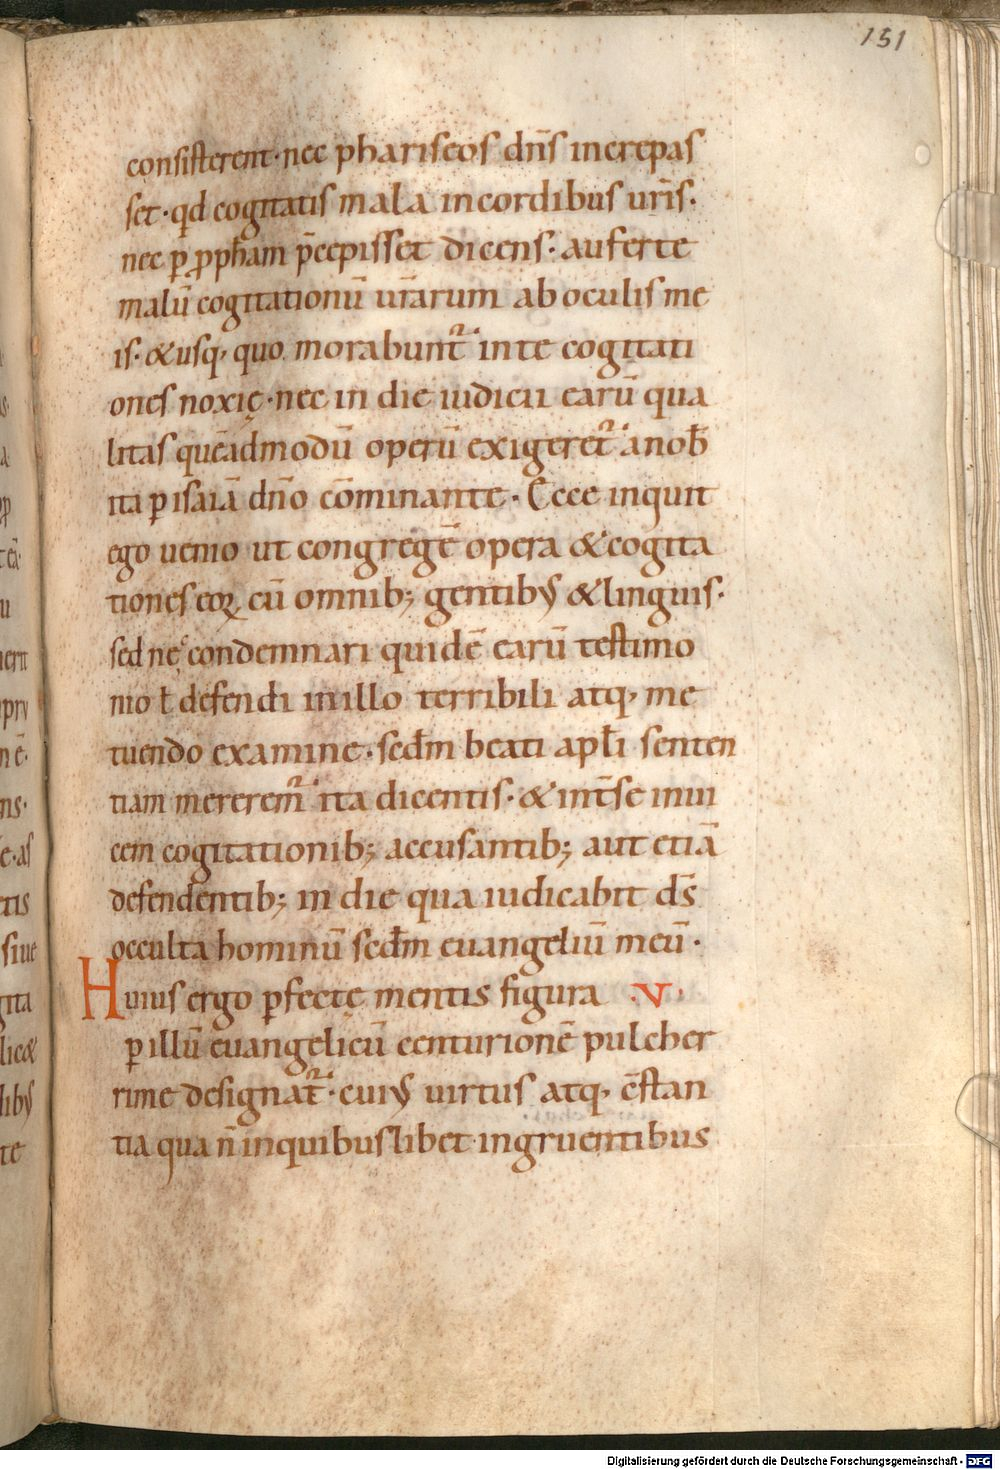 151
consisterent · nec phariseos dn̄s increpas
set · qd cogitatis mala incordibus ur̄is ·
nec p̱ pph̄am p̄cepisset dicens · auferte
malū cogitationū ur̄arum ab oculis me
is · & usq, quo morabunt᷑ · inte cogitati
ones noxię · nec in die iudicii earū qua
litas quēadmodū operū exigeret᷑ · a nob̄
ita p̱ isaiā dn̄o cōminante · Ecce inquit
ego uenio ut congregē opera & cogita
tiones eoꝝ cū omnib; gentibꝰ & linguis ·
sed nec condemnari quidē earū testimo
nio ł defendi inillo terribili atq, me
tuendo examine · sedm̄ beati apl̄i senten
tiam mererem᷑ · ita dicentis · & int̄ se inui
cem cogitationib; accusantib; aut etiā
defendentib; in die qua iudicabit ds̄
occulta hominū sedm̄ euangeliū meū ·
Huius ergo p̱fectę mentis figura · V ·
p̱ illū euangelicū centurionē pulcher
rime designat᷑ · cuiꝰ uirtus atq, c̄stan
tia qua n̄ inquibuslibet ingruentibus
Digitalisierung gefördert durch die Deutsche Forschungsgemeinschaft - DFG